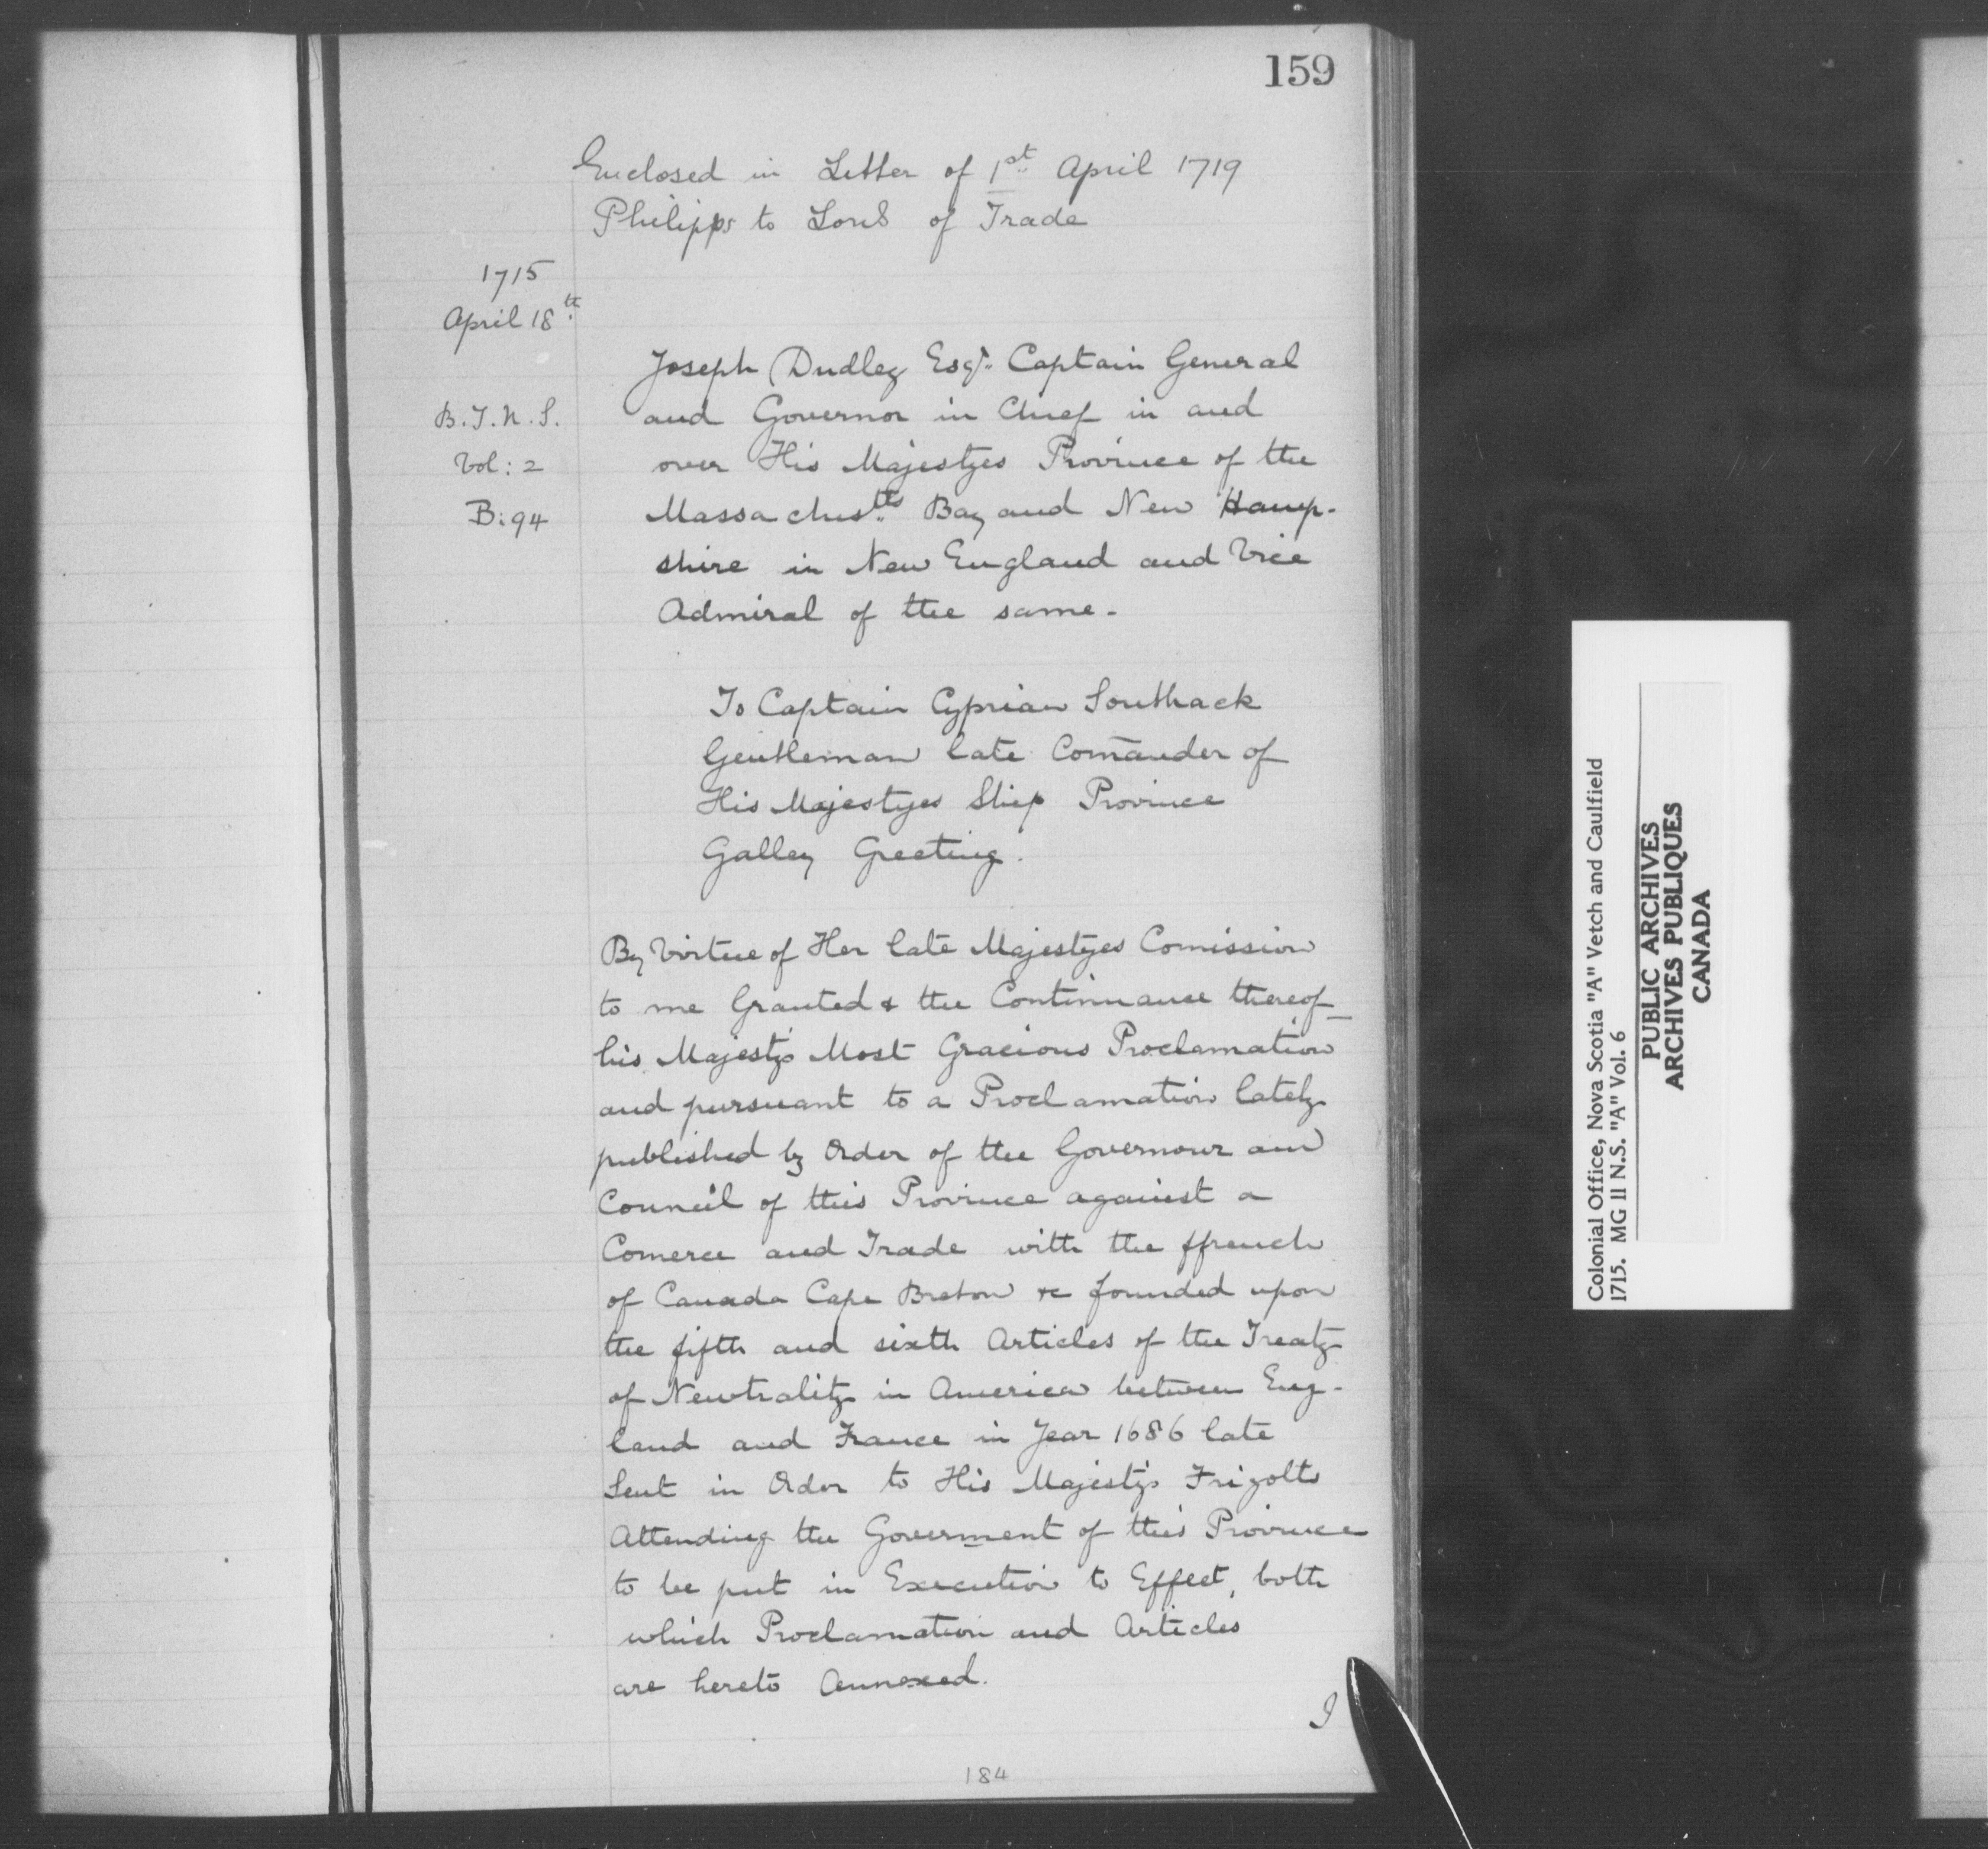 159
Enclosed in Letter of 1st April 1719
Philipps to Lords of Trade
1715
April 18th
B.T.N.S.
Vol: 2
B:94
Joseph Dudley Esqr. Captain General
and Governor in Chief in and
over His Majestyes Province of the
Massachustts Bay and New Hamp-
shire in New England and Vice
Admiral of the same-
To Captain Cyprian Southack
Gentleman late Comander of
His Majestyes Ship Province
Galley Greeting.
By Virtue of Her late Majestyes Comission
to me Granted & the Continuance thereof
his Majestys Most Gracious Proclamation
and pursuant to a Proclamation lately
published by Order of the Governour and
Council of this Province against a
Comerce and Trade with the ffrench
of Canada Cape Breton &c founded upon
the fifth and sixth Articles of the Treaty
of Newtrality in America between Eng-
land and France in Year 1686 late
Sent in Order to His Majestys Frigotts
Attending the Goverment of this Province
to be put in Execution to Effect, both
which Proclamation and Articles
are hereto Annexed.
I
184
Colonial Office, Nova Scotia "A" Vetch and Caulfield
1715. MG 11 N.S. "A" Vol. 6
PUBLIC ARCHIVES
ARCHIVES PUBLIQUES
CANADA